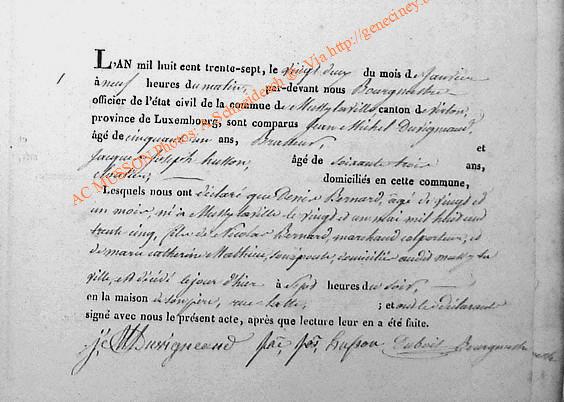 L'AN mil huit cent trente-sept, le vingt deux du mois de Janvier
à neuf heures du matin, par-devant nous Bourgmestre
officier de l'état civil de la commune de Mussy la ville, canton de Virton,
province de Luxembourg, sont comparus Jean Michel Duvigneaud,
âgé de cinquante un ans, Brasseur, et
Jacques Joseph husson, âgé de soixante trois ans,
domiciliés en cette commune,
Lesquels nous ont déclaré que Denis Bernard, âgé de vingt et
un mois, né à Mussy la ville le vingt et un mai mil huit cent
trente cinq, fils de Nicolas Bernard, marchand colporteur, et
de marie catherine Mathieu, son épouse, domiciliés audit mussy la
ville, est décédé le jour d'hier à sept heures du soir,
en la maison de son père, rue ; et ont les déclarants
signé avec nous le présent acte, après que lecture leur en a été faite.
Duvigneaud husson Bourgmestre
AC MUSSON Photos: A Schneidesch @ Via http://geneciney.